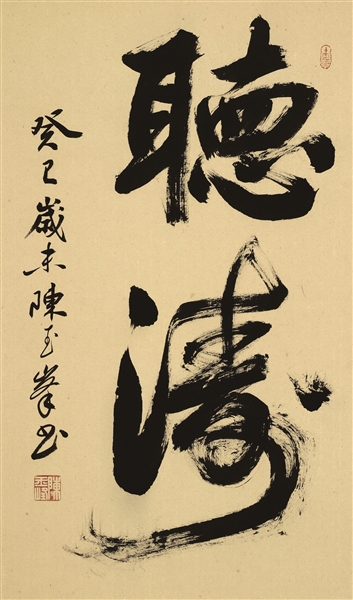 聽濤
癸巳歲末陳玉峯书